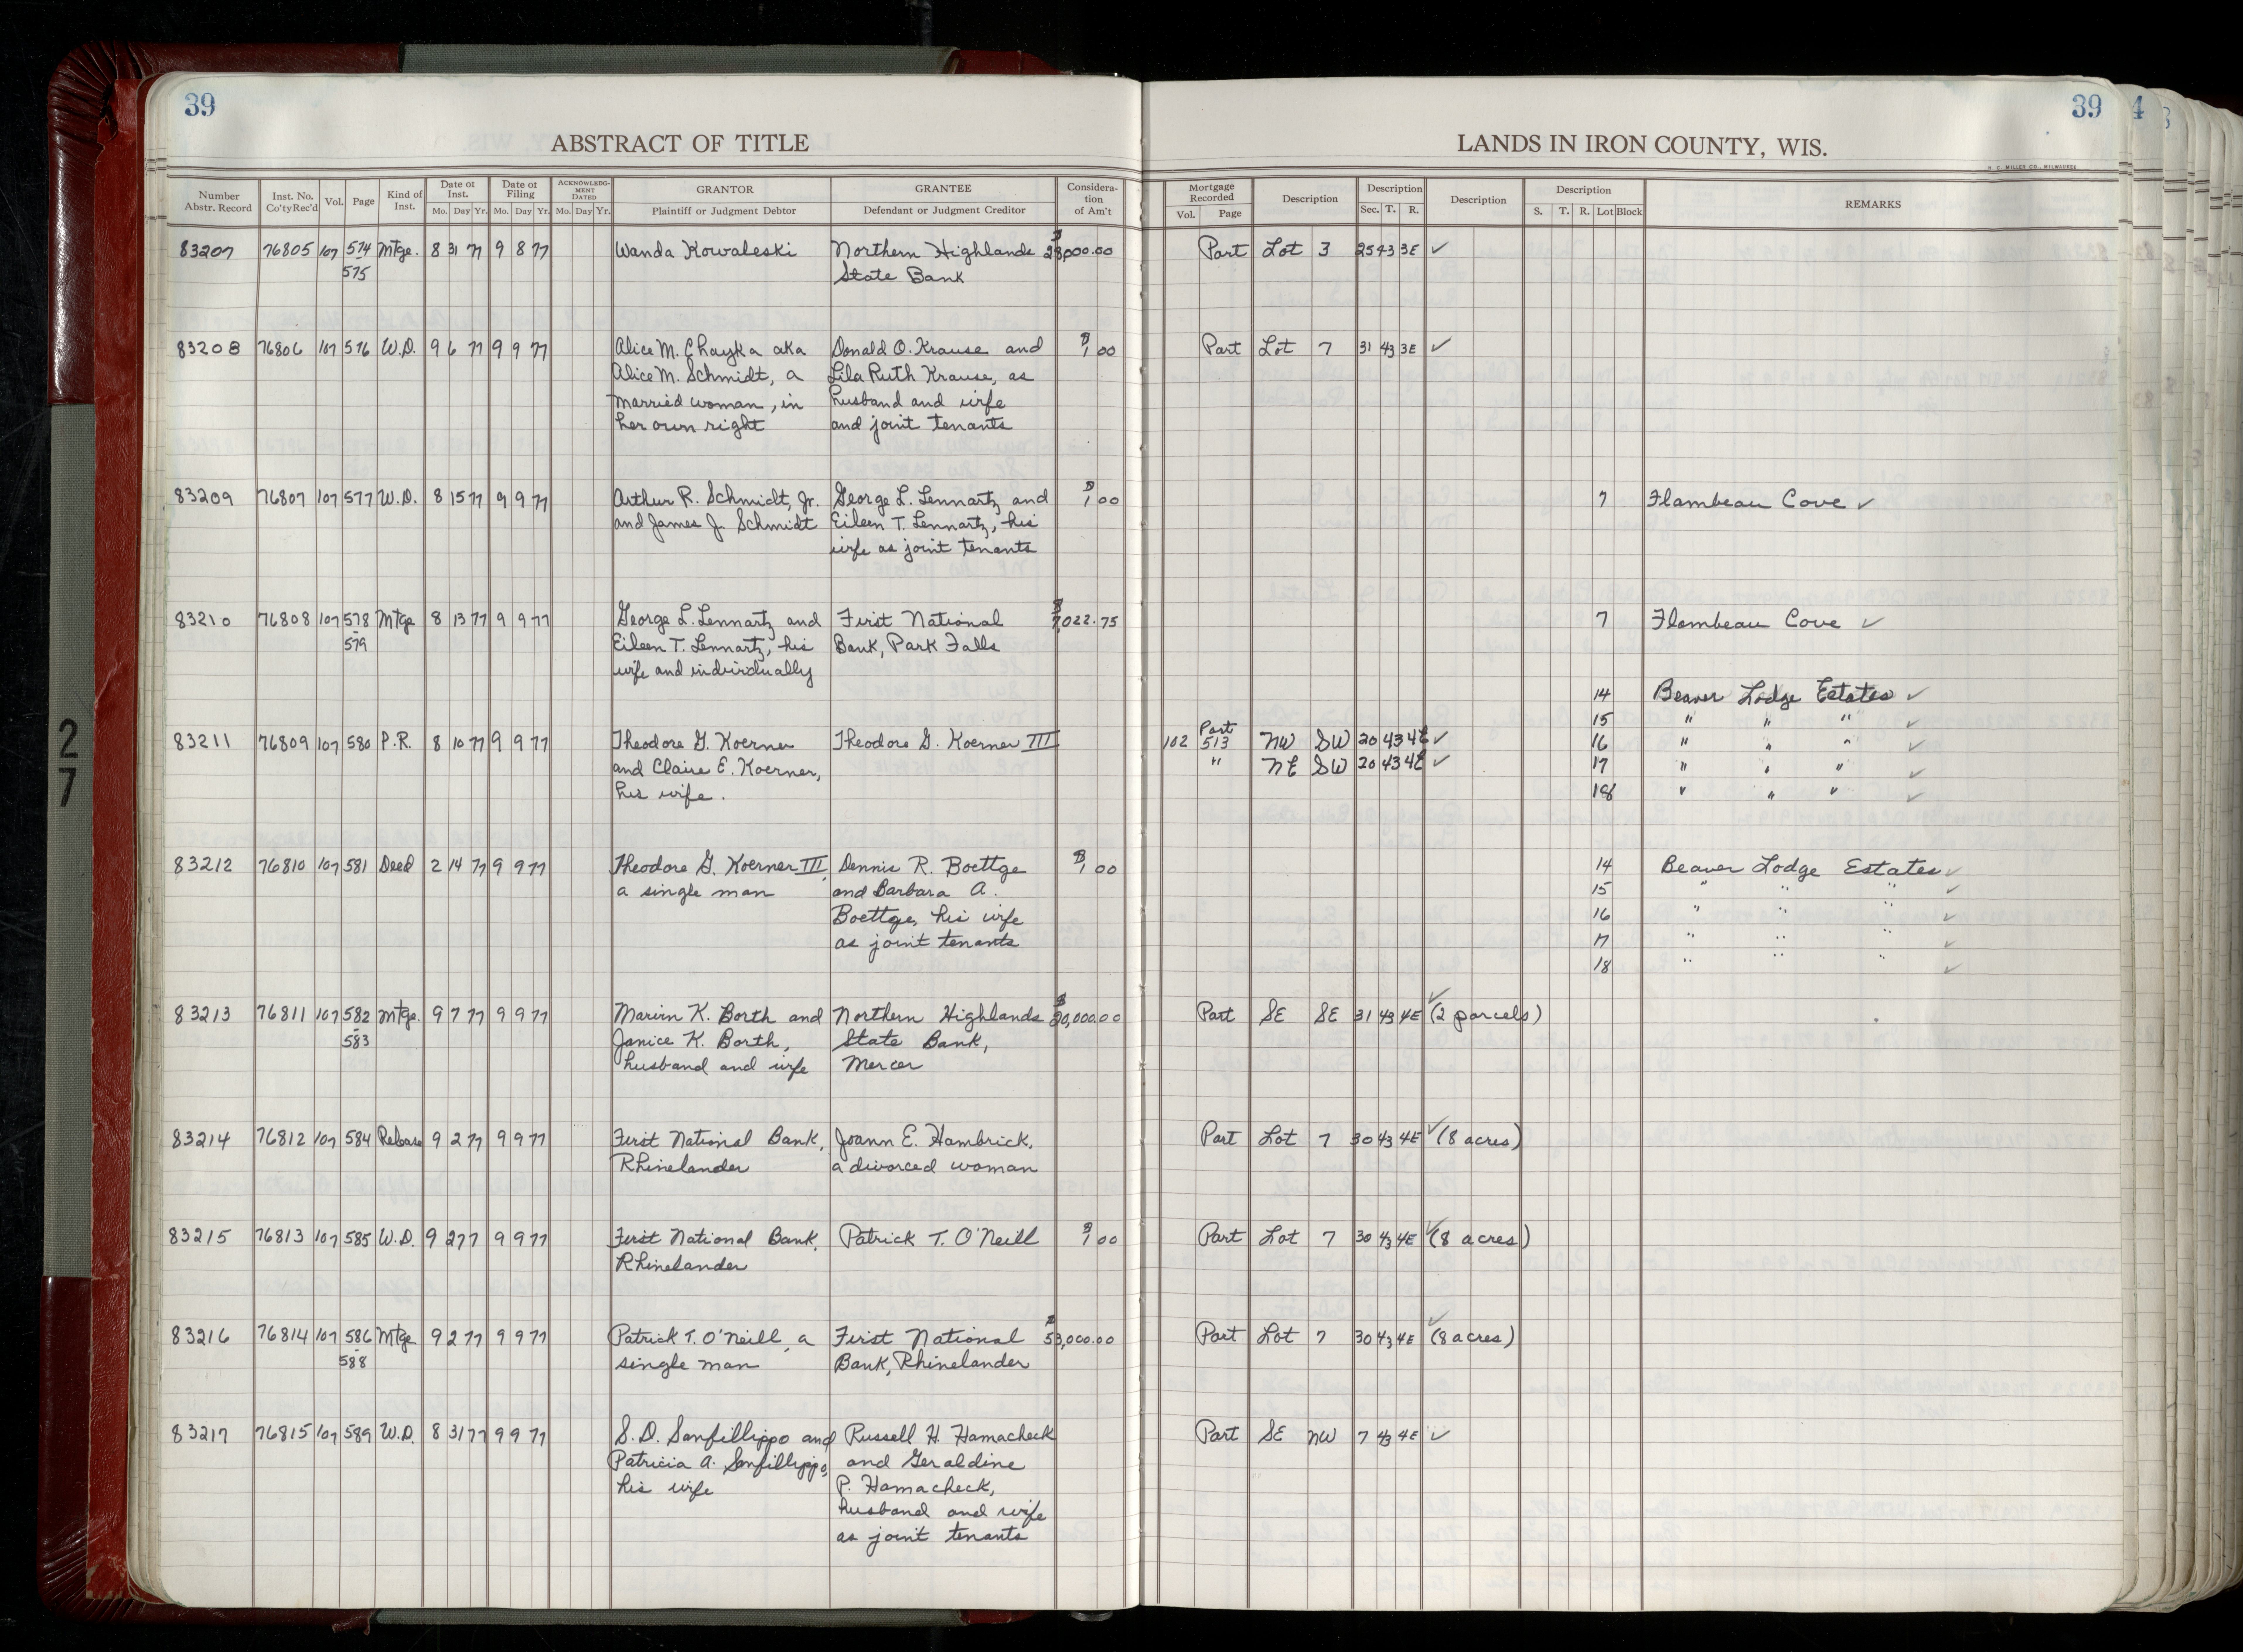 39
39
4
ABSTRACT OF TITLE
LANDS IN IRON COUNTY, WIS.
H. C. MILLER CO., MILWAUKEE
Number Abstr. Record Inst. No. Co'ty Rec'd Vol. Page Kind of Inst. Date of Inst. Mo. Day Yr. Date of Filing Mo. Day Yr. ACKNOWLEDGMENT DATED Mo. Day Yr. GRANTOR Plaintiff or Judgment Debtor GRANTEE Defendant or Judgment Creditor Considera-tion of Am't Mortgage Recorded Vol. Page Description Description Sec. T. R. Description Description S. T. R. Lot Block REMARKS
83207 76805 107 574 Mtge. 8 31 77 9 8 77 Wanda Kowaleski Northern Highlands $28,000.00 Part Lot 3 25 43 3E ✓
- 575 State Bank
83208 76806 107 576 W.D. 9 6 77 9 9 77 Alice M. Chayka aka Donald O. Krause and $1.00 Part Lot 7 31 43 3E ✓
Alice M. Schmidt, a Lila Ruth Krause, as
married woman, in husband and wife
her own right and joint tenants
83209 76807 107 577 W.D. 8 15 77 9 9 77 Arthur R. Schmidt, Jr. George L. Lennartz and $1.00 7 Flambeau Cove ✓
and James J. Schmidt Eileen T. Lennartz, his
wife as joint tenants
83210 76808 107 578 Mtge 8 13 77 9 9 77 George L. Lennartz and First National $7,022.75 7 Flambeau Cove ✓
- 579 Eileen T. Lennartz, his Bank, Park Falls
wife and individually
14 Beaver Lodge Estates ✓
Part 15 " " " ✓
83211 76809 107 580 P.R. 8 10 77 9 9 77 Theodore G. Koerner Theodore G. Koerner III 102 513 NW SW 20 43 4E ✓ 16 " " " ✓
and Claire E. Koerner, " NE SW 20 43 4E ✓ 17 " " " ✓
his wife. 18 " " " ✓
83212 76810 107 581 Deed 2 14 77 9 9 77 Theodore G. Koerner III, Dennis R. Boettge $1.00 14 Beaver Lodge Estates ✓
a single man and Barbara A. 15 " " " ✓
Boettge, his wife 16 " " " ✓
as joint tenants 17 " " " ✓
18 " " " ✓
83213 76811 107 582 Mtge. 9 7 77 9 9 77 Marvin K. Borth and Northern Highlands $20,000.00 Part SE SE 31 43 4E ✓ (2 parcels)
- 583 Janice K. Borth, State Bank,
husband and wife Mercer
83214 76812 107 584 Release 9 2 77 9 9 77 First National Bank, Joann E. Hambrick, Part Lot 7 30 43 4E ✓ (8 acres)
Rhinelander a divorced woman
83215 76813 107 585 W.D. 9 2 77 9 9 77 First National Bank, Patrick T. O'Neill $1.00 Part Lot 7 30 43 4E ✓ (8 acres)
Rhinelander
83216 76814 107 586 Mtge 9 2 77 9 9 77 Patrick T. O'Neill, a First National $53,000.00 Part Lot 7 30 43 4E ✓ (8 acres)
- 588 single man Bank, Rhinelander
83217 76815 107 589 W.D. 8 31 77 9 9 77 S. D. Sanfillippo and Russell H. Hamacheck Part SE NW 7 43 4E ✓
Patricia A. Sanfillippo, and Geraldine
his wife P. Hamacheck,
husband and wife
as joint tenants
27